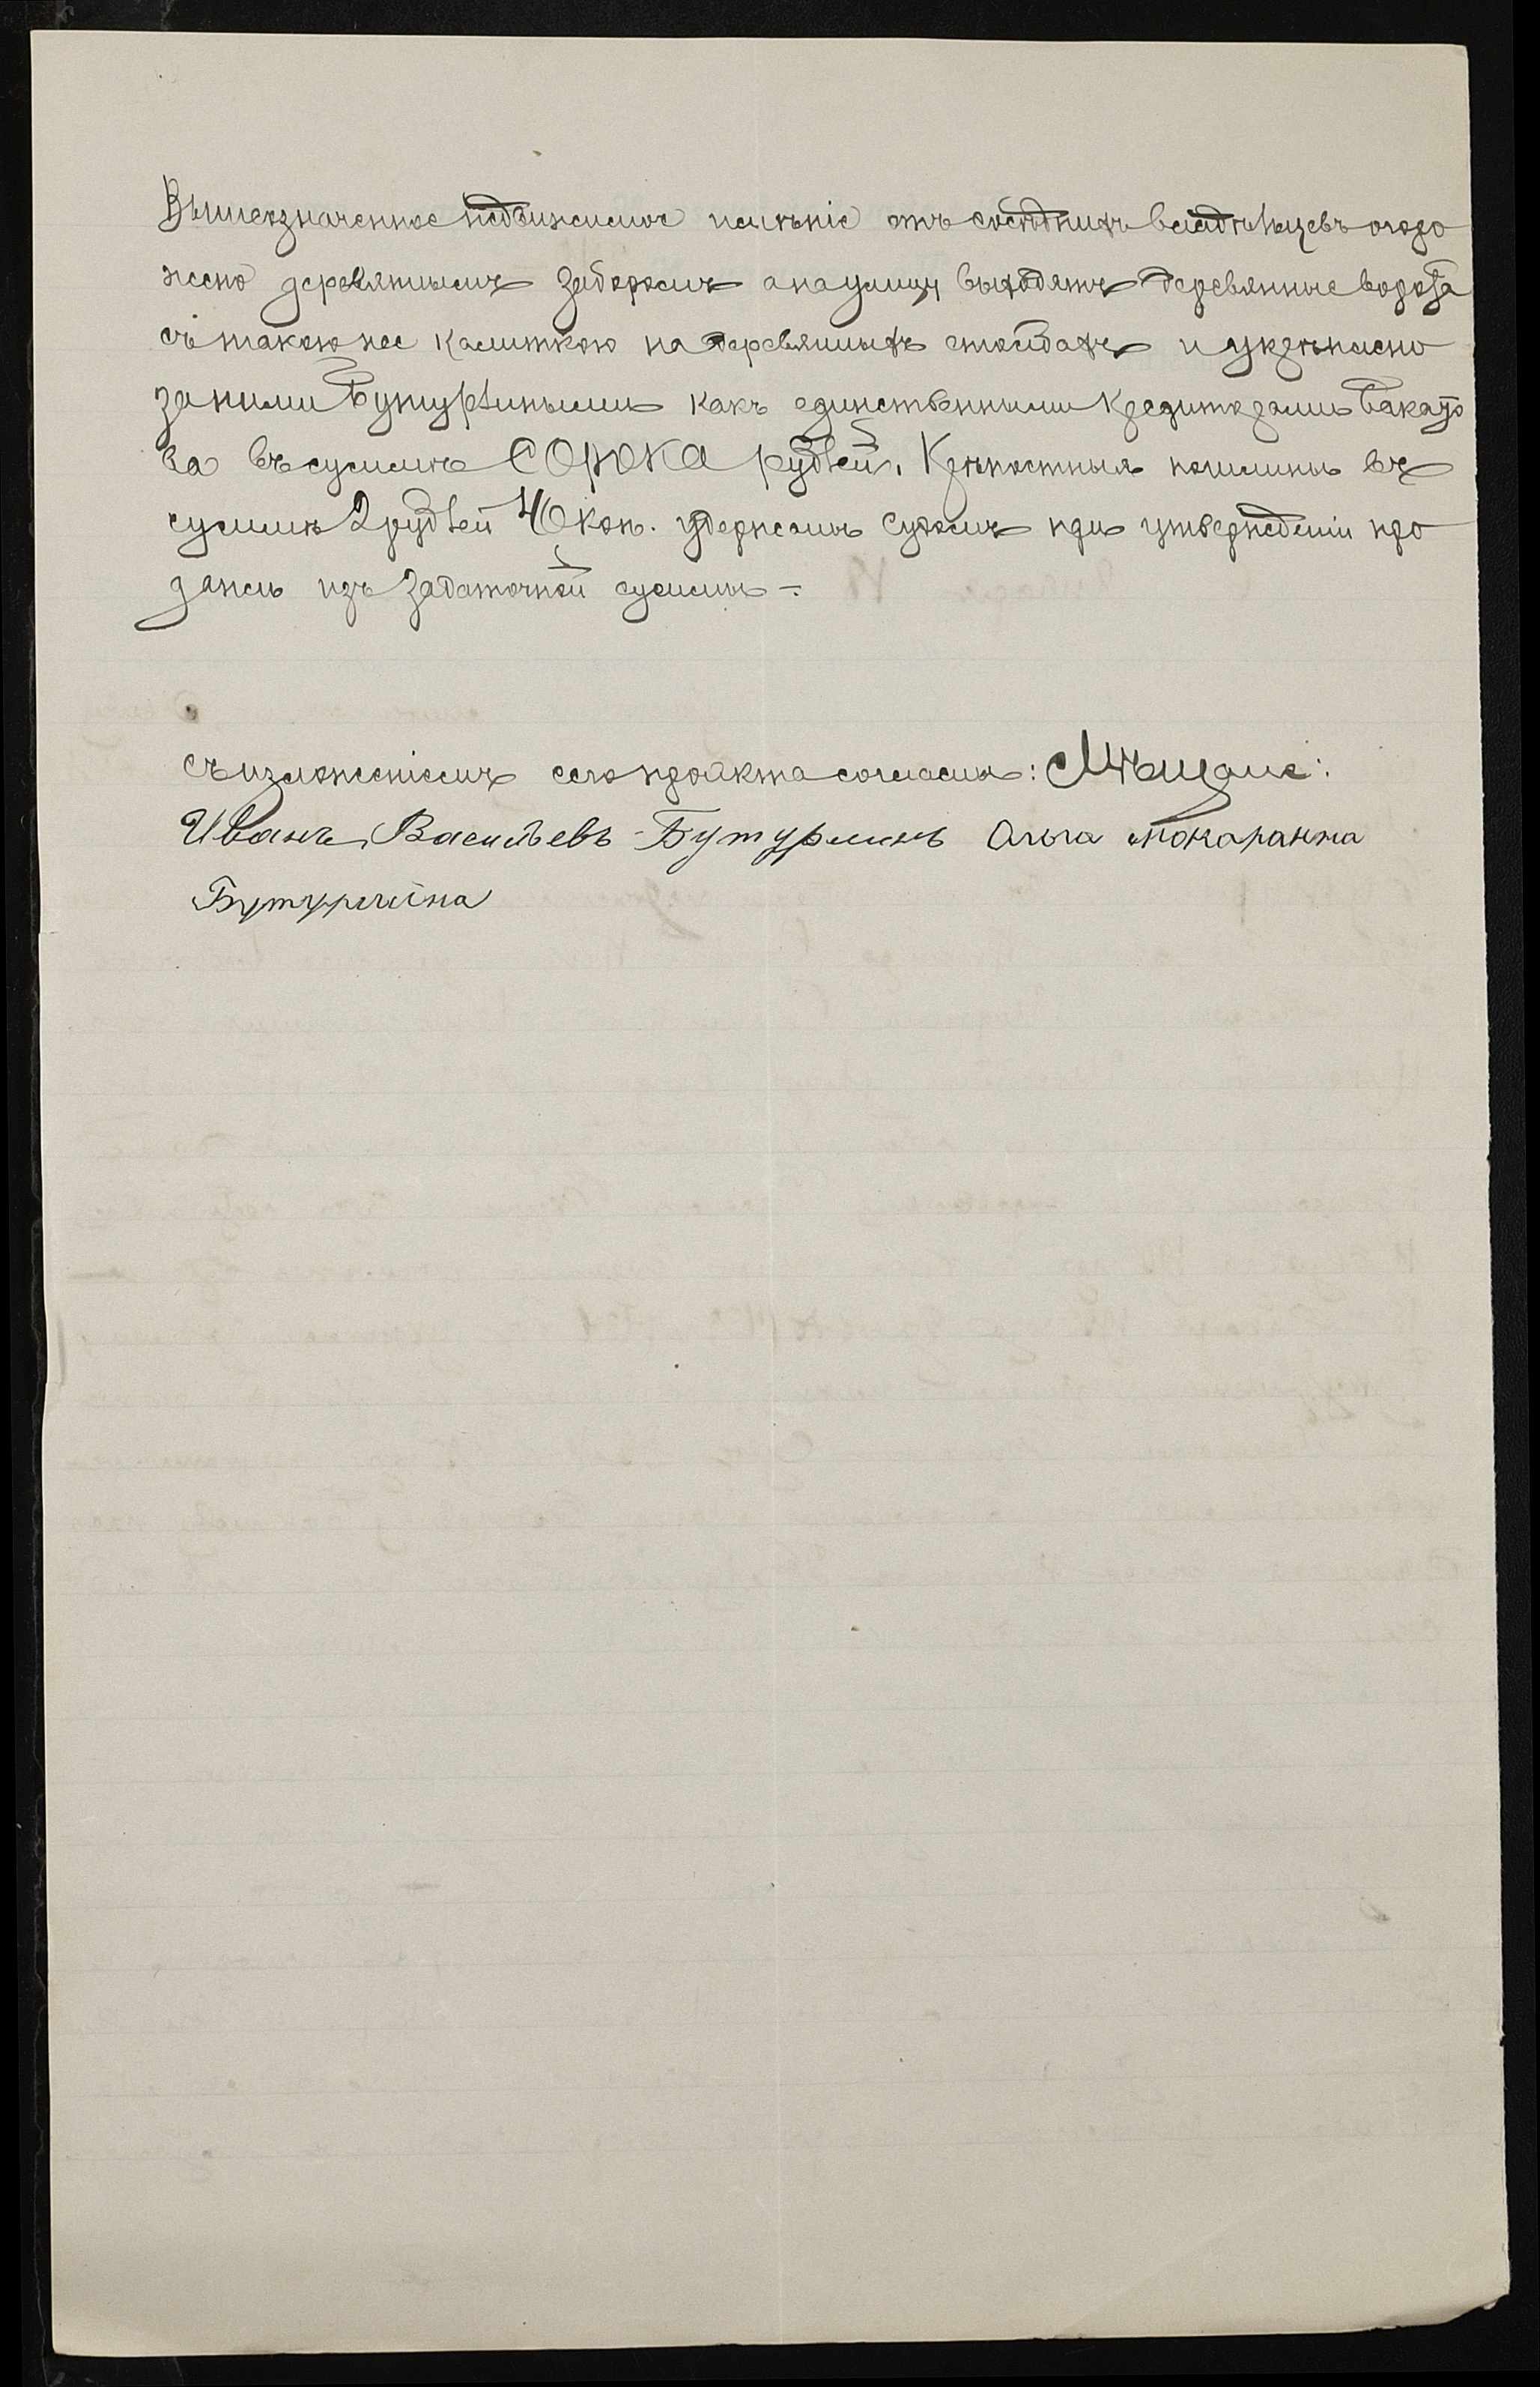 Вышеозначенное недвижимое имѣніе отъ сосѣднихъ владѣльцевъ огоро
жено деревяннымъ заборомъ а на улицу выходятъ деревянные ворота
съ такою же калиткою на деревянныхъ столбахъ и укрѣплено
за ними Бутурлиными какъ единственными кредиторами
ва въ суммѣ СОРОКА рублей. Крѣпостныя пошлины въ
суммѣ 2 рублей 40 коп. удержаны Судомъ при утвержденіи про
дажи изъ задаточной суммы -.
Съ изложеніемъ сего проэкта согласны: Мѣщане:
Иванъ Васильевъ Бутурлинъ Ольга
Бутурлина